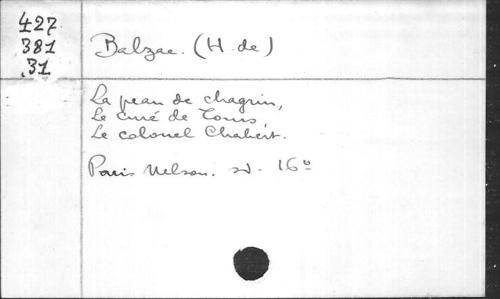 427
381
.31
Balzac. (H. de)
La peau de chagrin,
Le curé de Tours,
Le colonel Chabert.
Paris Nelson. sd. 16º